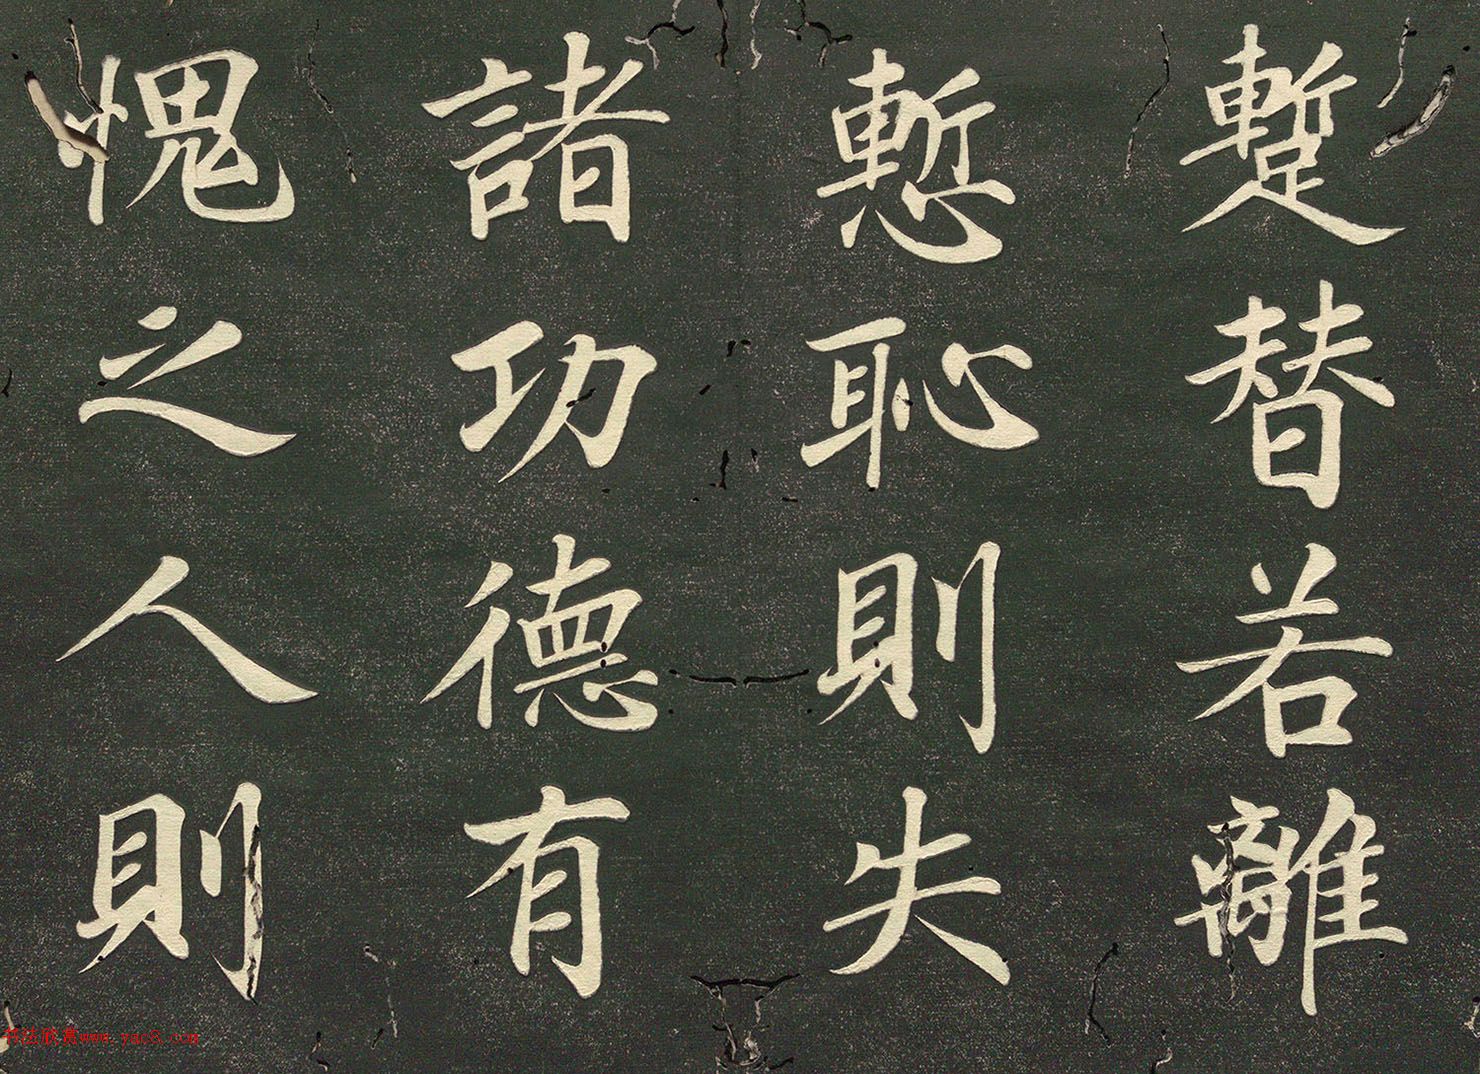 蹔替若離
慙恥則失
諸功德有
愧之人則
书法欣赏www.yac8.com